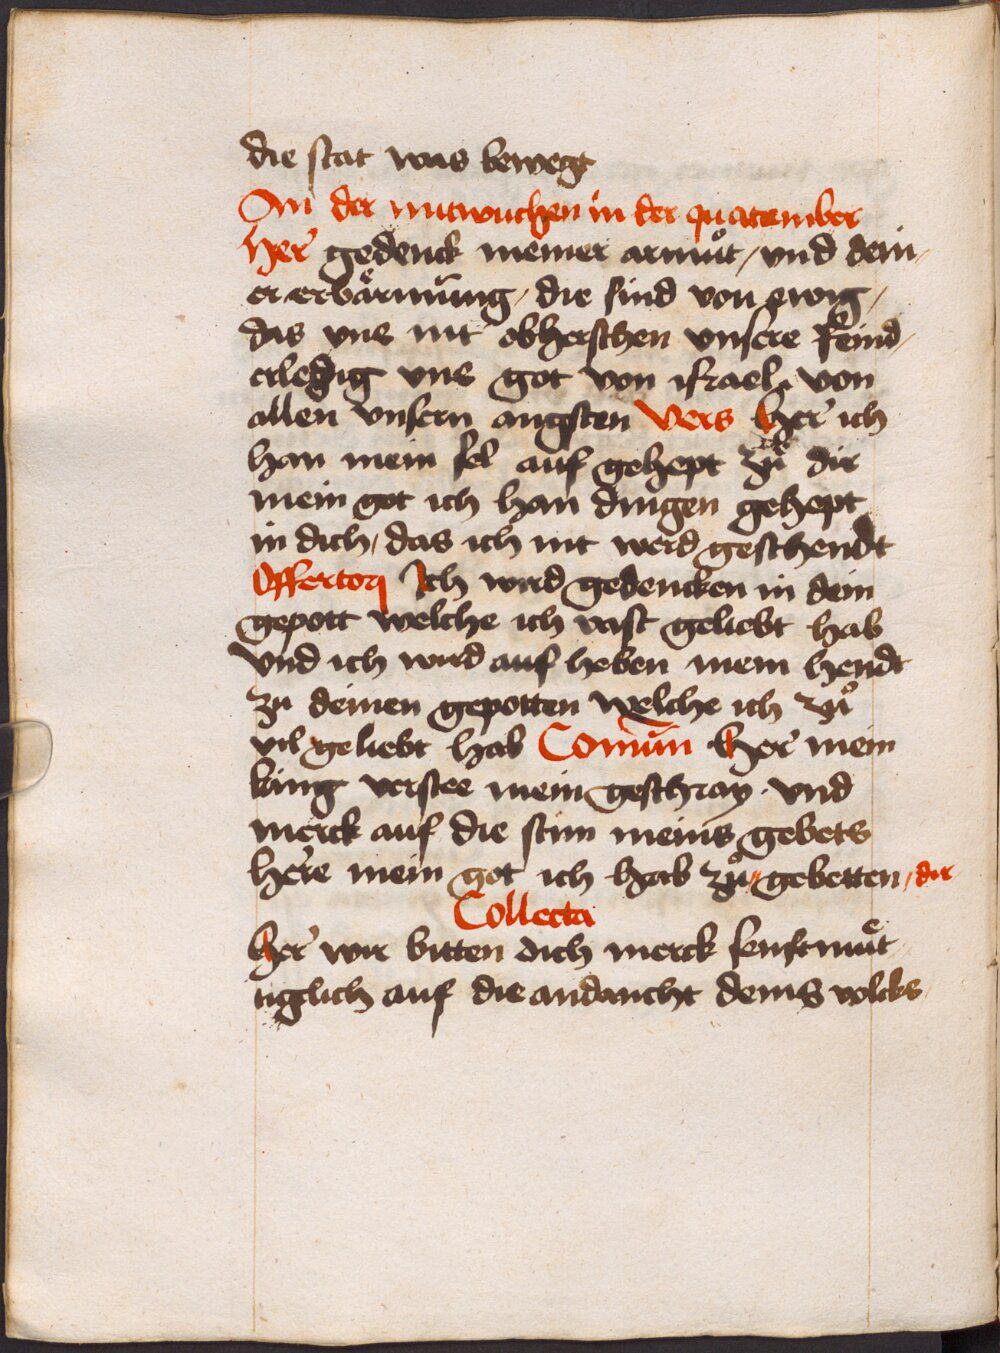 die stat was bewegt
An der mitwuchen in der quatember
Her gedenck meiner armuͦt / vnd dein-
er erbaͤrmung / die sind von ewig /
das vns nit obherschen vnsere feind /
erledig vns got von israel von
allen vnsern angsten Vers Her ich
han mein sel auf gehept zuͦ dir
mein got ich han dingen gehept
in dich / das ich nit werd geschendt
Offertorj Ich wird gedencken in dein
gepott welche ich vast geliebt hab
vnd ich wird auf heben mein hendt
zu deinen gepotten welche ich zuͦ
vil geliebt hab Comun Her mein
king verstee mein geschray vnd
merck auf die stim meins gebets
here mein got ich hab zuͦ gebetten / dir
Collecta
Her wir bitten dich merck senftmuͤt
iglich auf die andaucht deins volcks